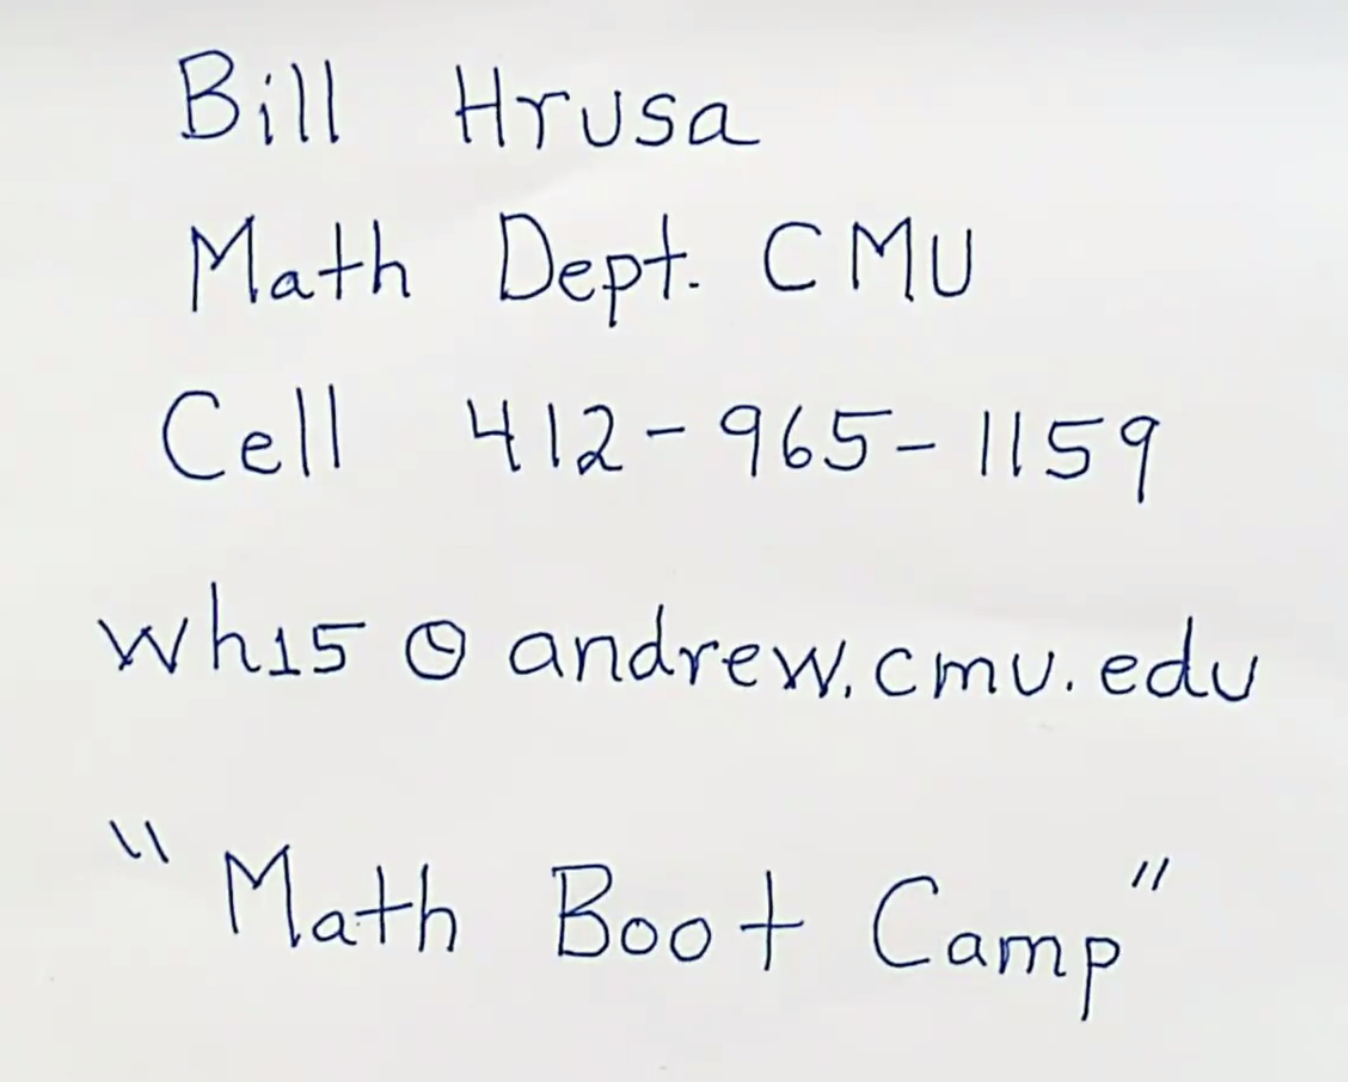 Bill Hrusa
Math Dept. CMU
Cell 412-965-1159
wh15@andrew.cmu.edu
"Math Boot Camp"